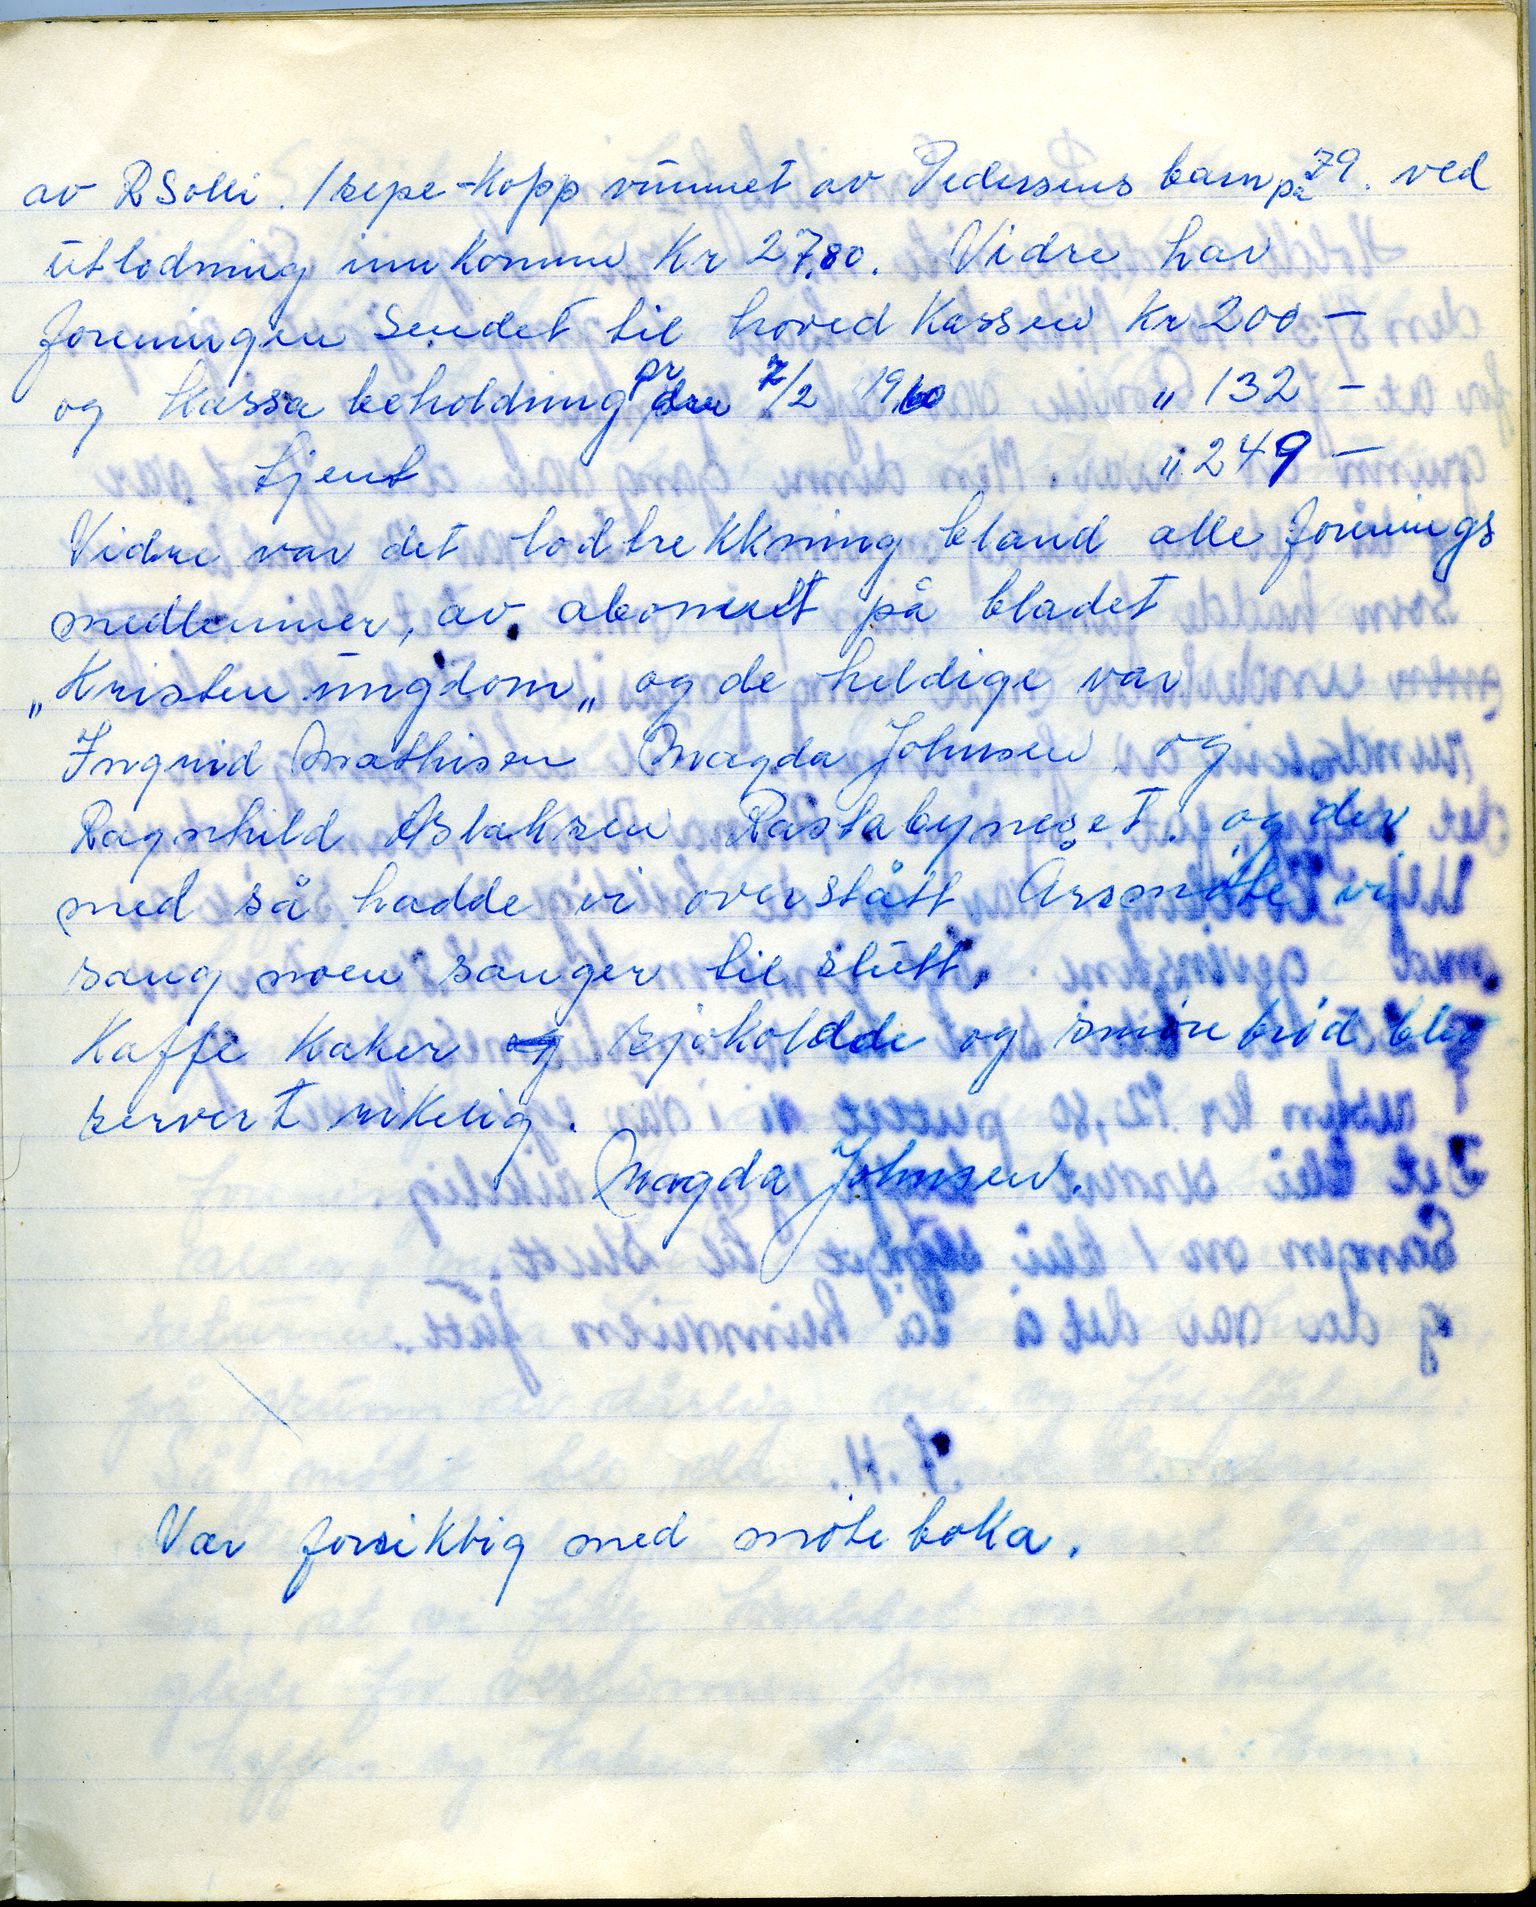 av R Solli. 1 sepe-Kopp vunnet av Pedersens barn på 79. ved
utlodning innkomme Kr 27,80. Vidre hav
foreningen sendet til hoved Kassen Kr 200 –
og Kassa beholdning pr 7/2 1960 „ 132 –
tjent „ 249 –
Vidre var det lodtrekkning bland alle forenings
medlemmer, av abonnelt på bladet
„Kristen ungdom„ og de heldige var
Ingrid Mathisen Magda Johnsen og
Ragnhild Aslaksen Rastabyneset. og der
med så hadde vi overstått Årsmøte vi
sang noen sanger til slutt.
Kaffe Kaker og sjokoldde og smørebrød blev
servert rikelig.
Magda Johnsen.
Vær forsiktig med møteboka.